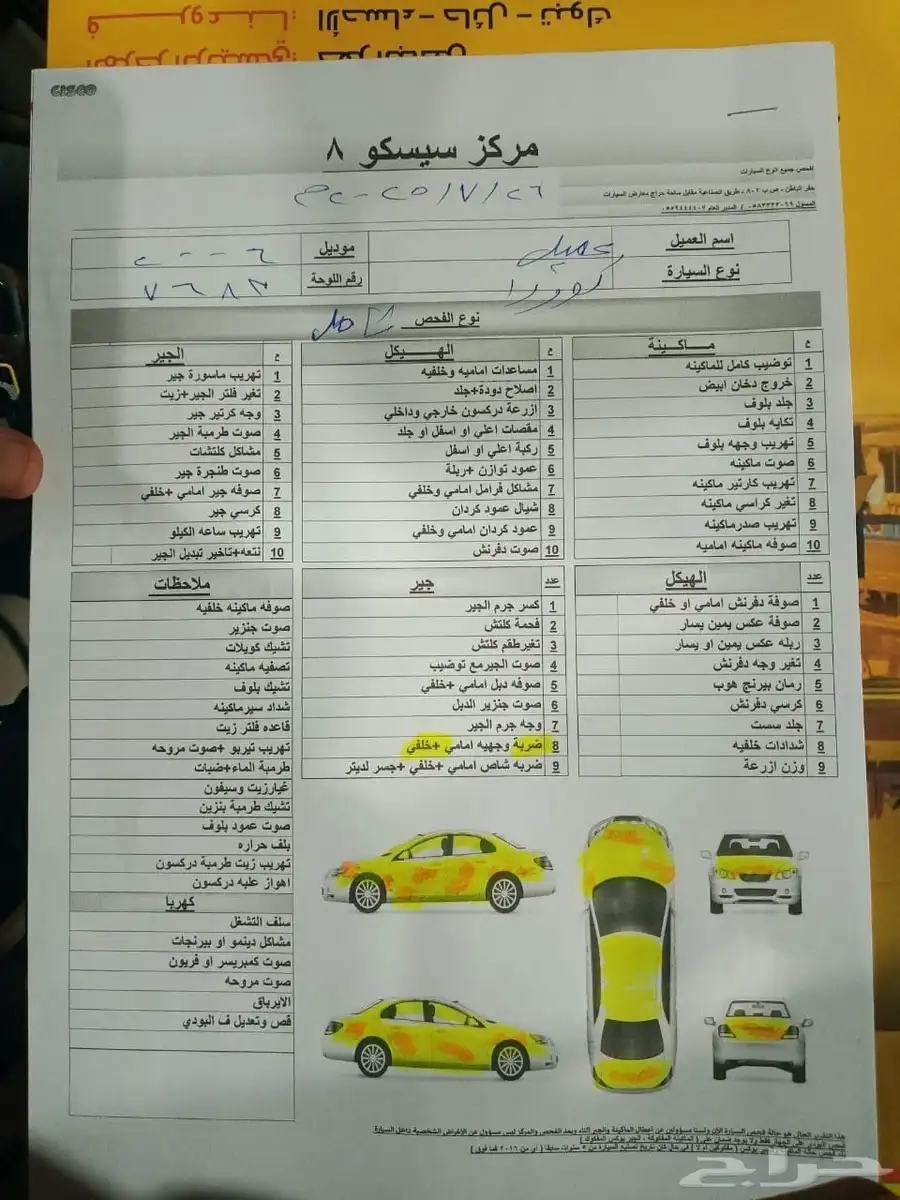 فـــروعـــنـــا :
الأحساء - حائل - تبوك
المركز الرئيسي:
حفر الباطن
CISCO
مركز سيسكو ٨
لفحص جميع انواع السيارات
حفر الباطن - ص ب ٨٠٢ - طريق الصناعية مقابل ساحة حراج معارض السيارات
اسم العميل
عميل
موديل
٢٠٠٦
نوع السيارة
رقم اللوحة
٧٦٨٣
نوع الفحص
شامل
م
مــاكــيـنة
1 توضيب كامل للماكينه
2 خروج دخان ابيض
3 جلد بلوف
4 تكايه بلوف
5 تهريب وجهه بلوف
6 صوت ماكينه
7 تهريب كارتير ماكينه
8 تغير كراسي ماكينه
9 تهريب صدرماكينه
10 صوفه ماكينه اماميه
م
الهـــيكل
1 مساعدات اماميه وخلفيه
2 اصلاح دودة+جلد
3 ازرعة دركسون خارجي وداخلي
4 مقصات اعلي او اسفل او جلد
5 ركبة اعلي او اسفل
6 عمود توازن +ربلة
7 مشاكل فرامل امامي وخلفي
8 شيال عمود كردان
9 عمود كردان امامي وخلفي
10 صوت دفرنش
م
الجير
1 تهريب ماسورة جير
2 تغير فلتر الجير+زيت
3 وجه كرتير جير
4 صوت طرمبة الجير
5 مشاكل كلتشات
6 صوت طنجرة جير
7 صوفه جير امامي +خلفي
8 كرسي جير
9 تهريب ساعه الكيلو
10 نتعه+تاخير تبديل الجير
عدد
الهيكل
1 صوفة دفرنش امامي او خلفي
2 صوفة عكس يمين يسار
3 ربله عكس يمين او يسار
4 تغير وجه دفرنش
5 رمان بيرنج هوب
6 كرسي دفرنش
7 جلد سست
8 شدادات خلفيه
9 وزن ازرعة
عدد
جير
1 كسر جرم الجير
2 فحمة كلتش
3 تغيرطقم كلتش
4 صوت الجيرمع توضيب
5 صوفه دبل امامي +خلفي
6 صوت جنزير الدبل
7 وجه جرم الجير
8 ضربة وجهيه امامي +خلفي
9 ضربه شاص امامي +خلفي +جسر لديتر
ملاحظات
صوفه ماكينه خلفيه
صوت جنزير
تشيك كويلات
تصفيه ماكينه
تشيك بلوف
شداد سيرماكينه
قاعده فلتر زيت
تهريب تيربو +صوت مروحه
طرمبة الماء+ضبات
غيارزيت وسيفون
تشيك طرمبة بنزين
صوت عمود بلوف
بلف حراره
تهريب زيت طرمبة دركسون
اهواز علبه دركسون
كهربا
سلف التشغل
مشاكل دينمو او بيرنجات
صوت كمبريسر او فريون
صوت مروحه
الايرباق
قص وتعديل ف البودي
حراج